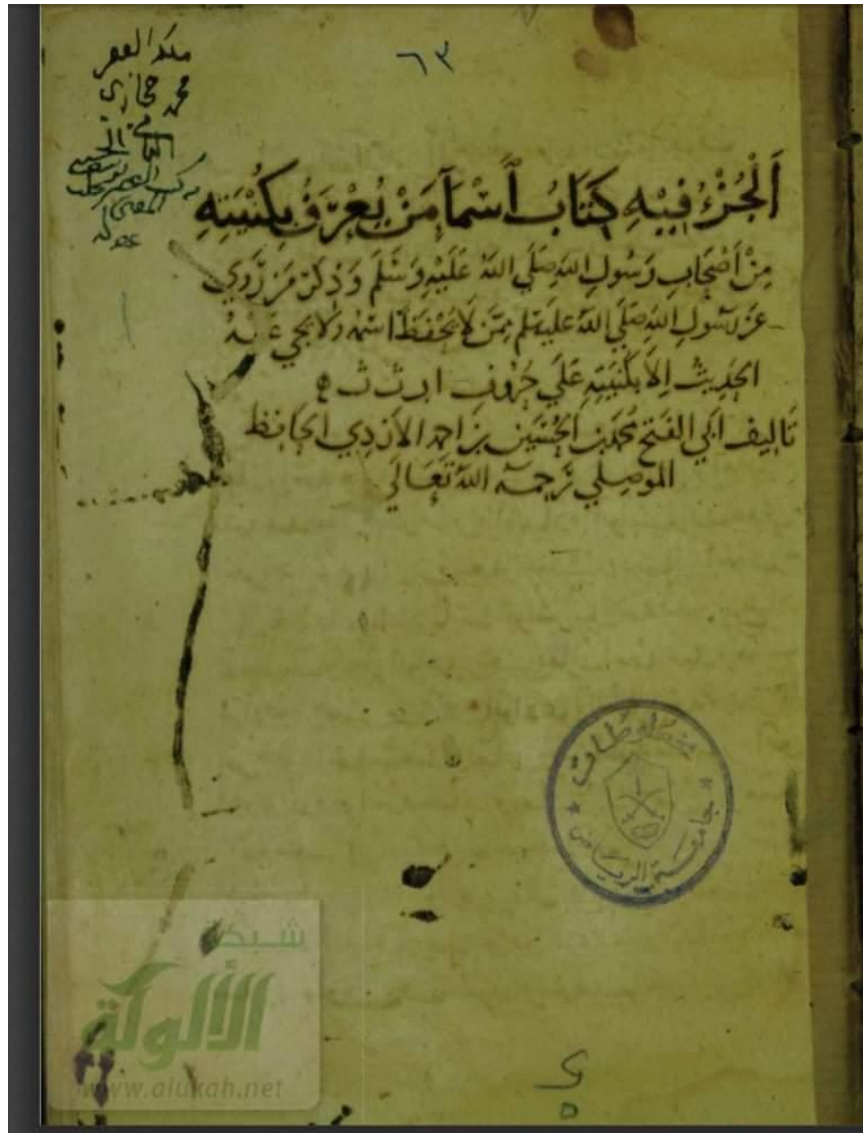 ٦٣
محمد حجازي
اَلْجُزْءُ فِيْهِ كِتَابُ اَسْمَآ مَنْ يُعْرَفُ بِكُنْيَتِهِ
مِنْ اَصْحَابِ رَسُولِ اللهِ صَلَّي اللهُ عَلَيْهِ وَسَلَّمَ وَذِكْرُ مَنْ رَوَي
عَنْ رَسُولِ اللهِ صَلَّي اللهُ عليه وسَلم مِمَّن لَا يُحْفَظُ اسْمُهُ وَلَا يجي عَنْهُ
الحَدِيْث اِلَّا بِكُنْيَتِهِ عَلَي حُرُوْفِ ا ب ت ث
تَالِيف اَبي الفَتح مُحَمَّد بن الحُسَيْن بن احمد الأزدي الحَافظ
الموصِلي رَّحِمَهُ اللهُ تَعَالَي
مخطوطات
جامعة الرياض
شبكة
الألوكة
www.alukah.net